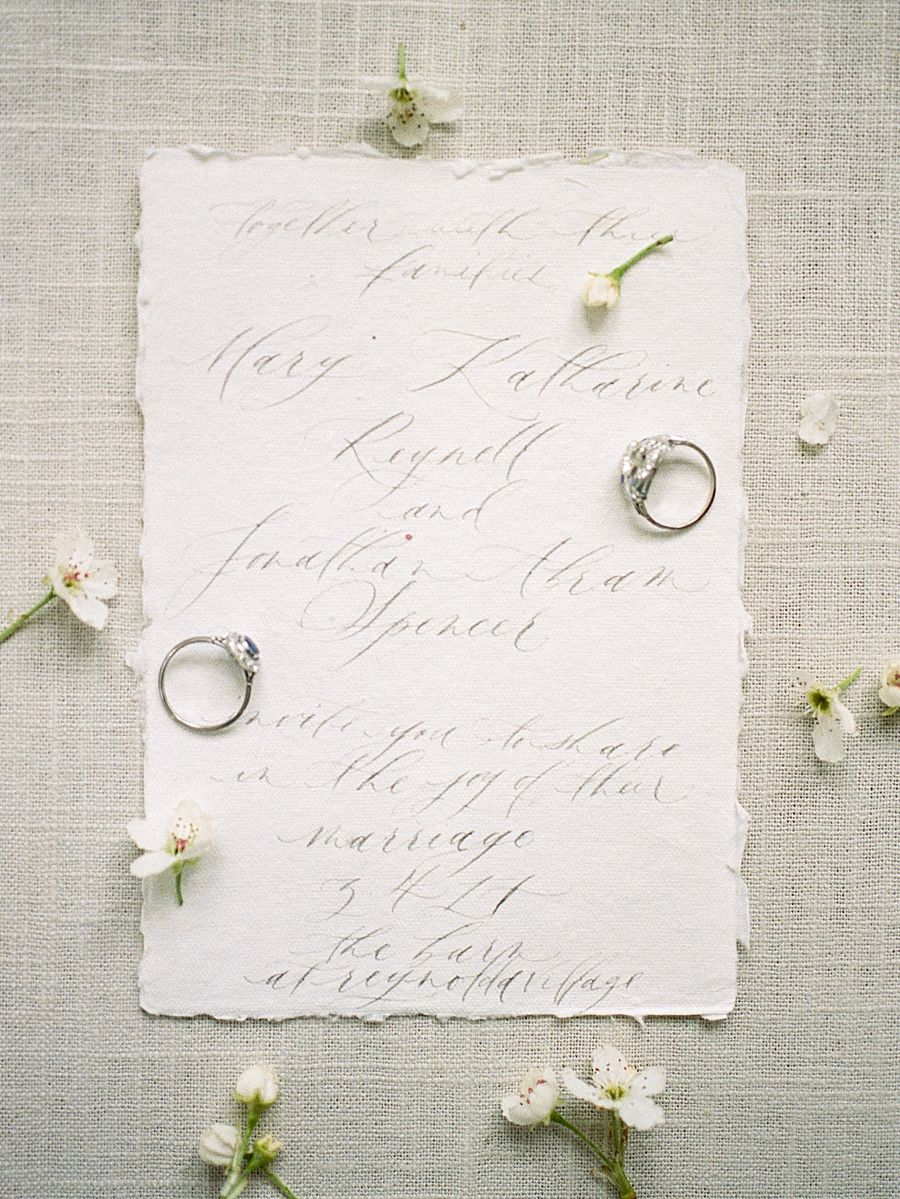 together with their
families
Mary Katharine
Reynell
and
Jonathan Abram
Spencer
invite you to share
in the joy of their
marriage
the barn
at reynolda village